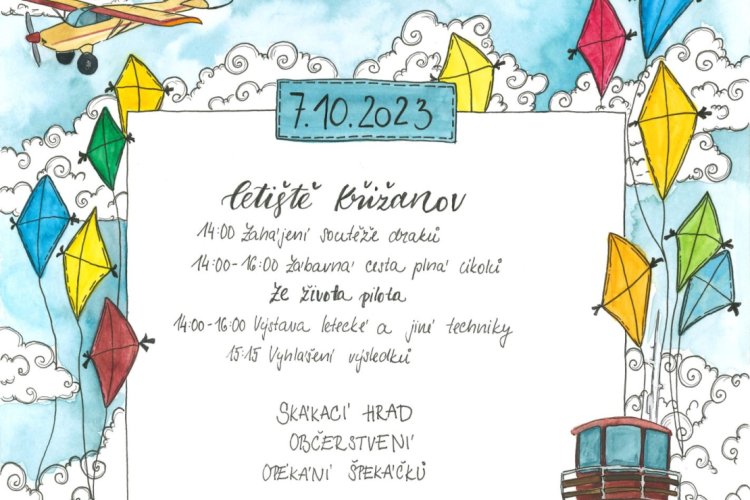 7.10.2023
letiště Křižanov
14:00 Zahájení soutěže draků
14:00-16:00 Zábavná cesta plná úkolů
ze života pilota
14:00-16:00 Výstava letecké a jiné techniky
15:15 Vyhlášení výsledků
SKÁKACÍ HRAD
OBČERSTVENÍ
OPÉKÁNÍ ŠPEKÁČKŮ